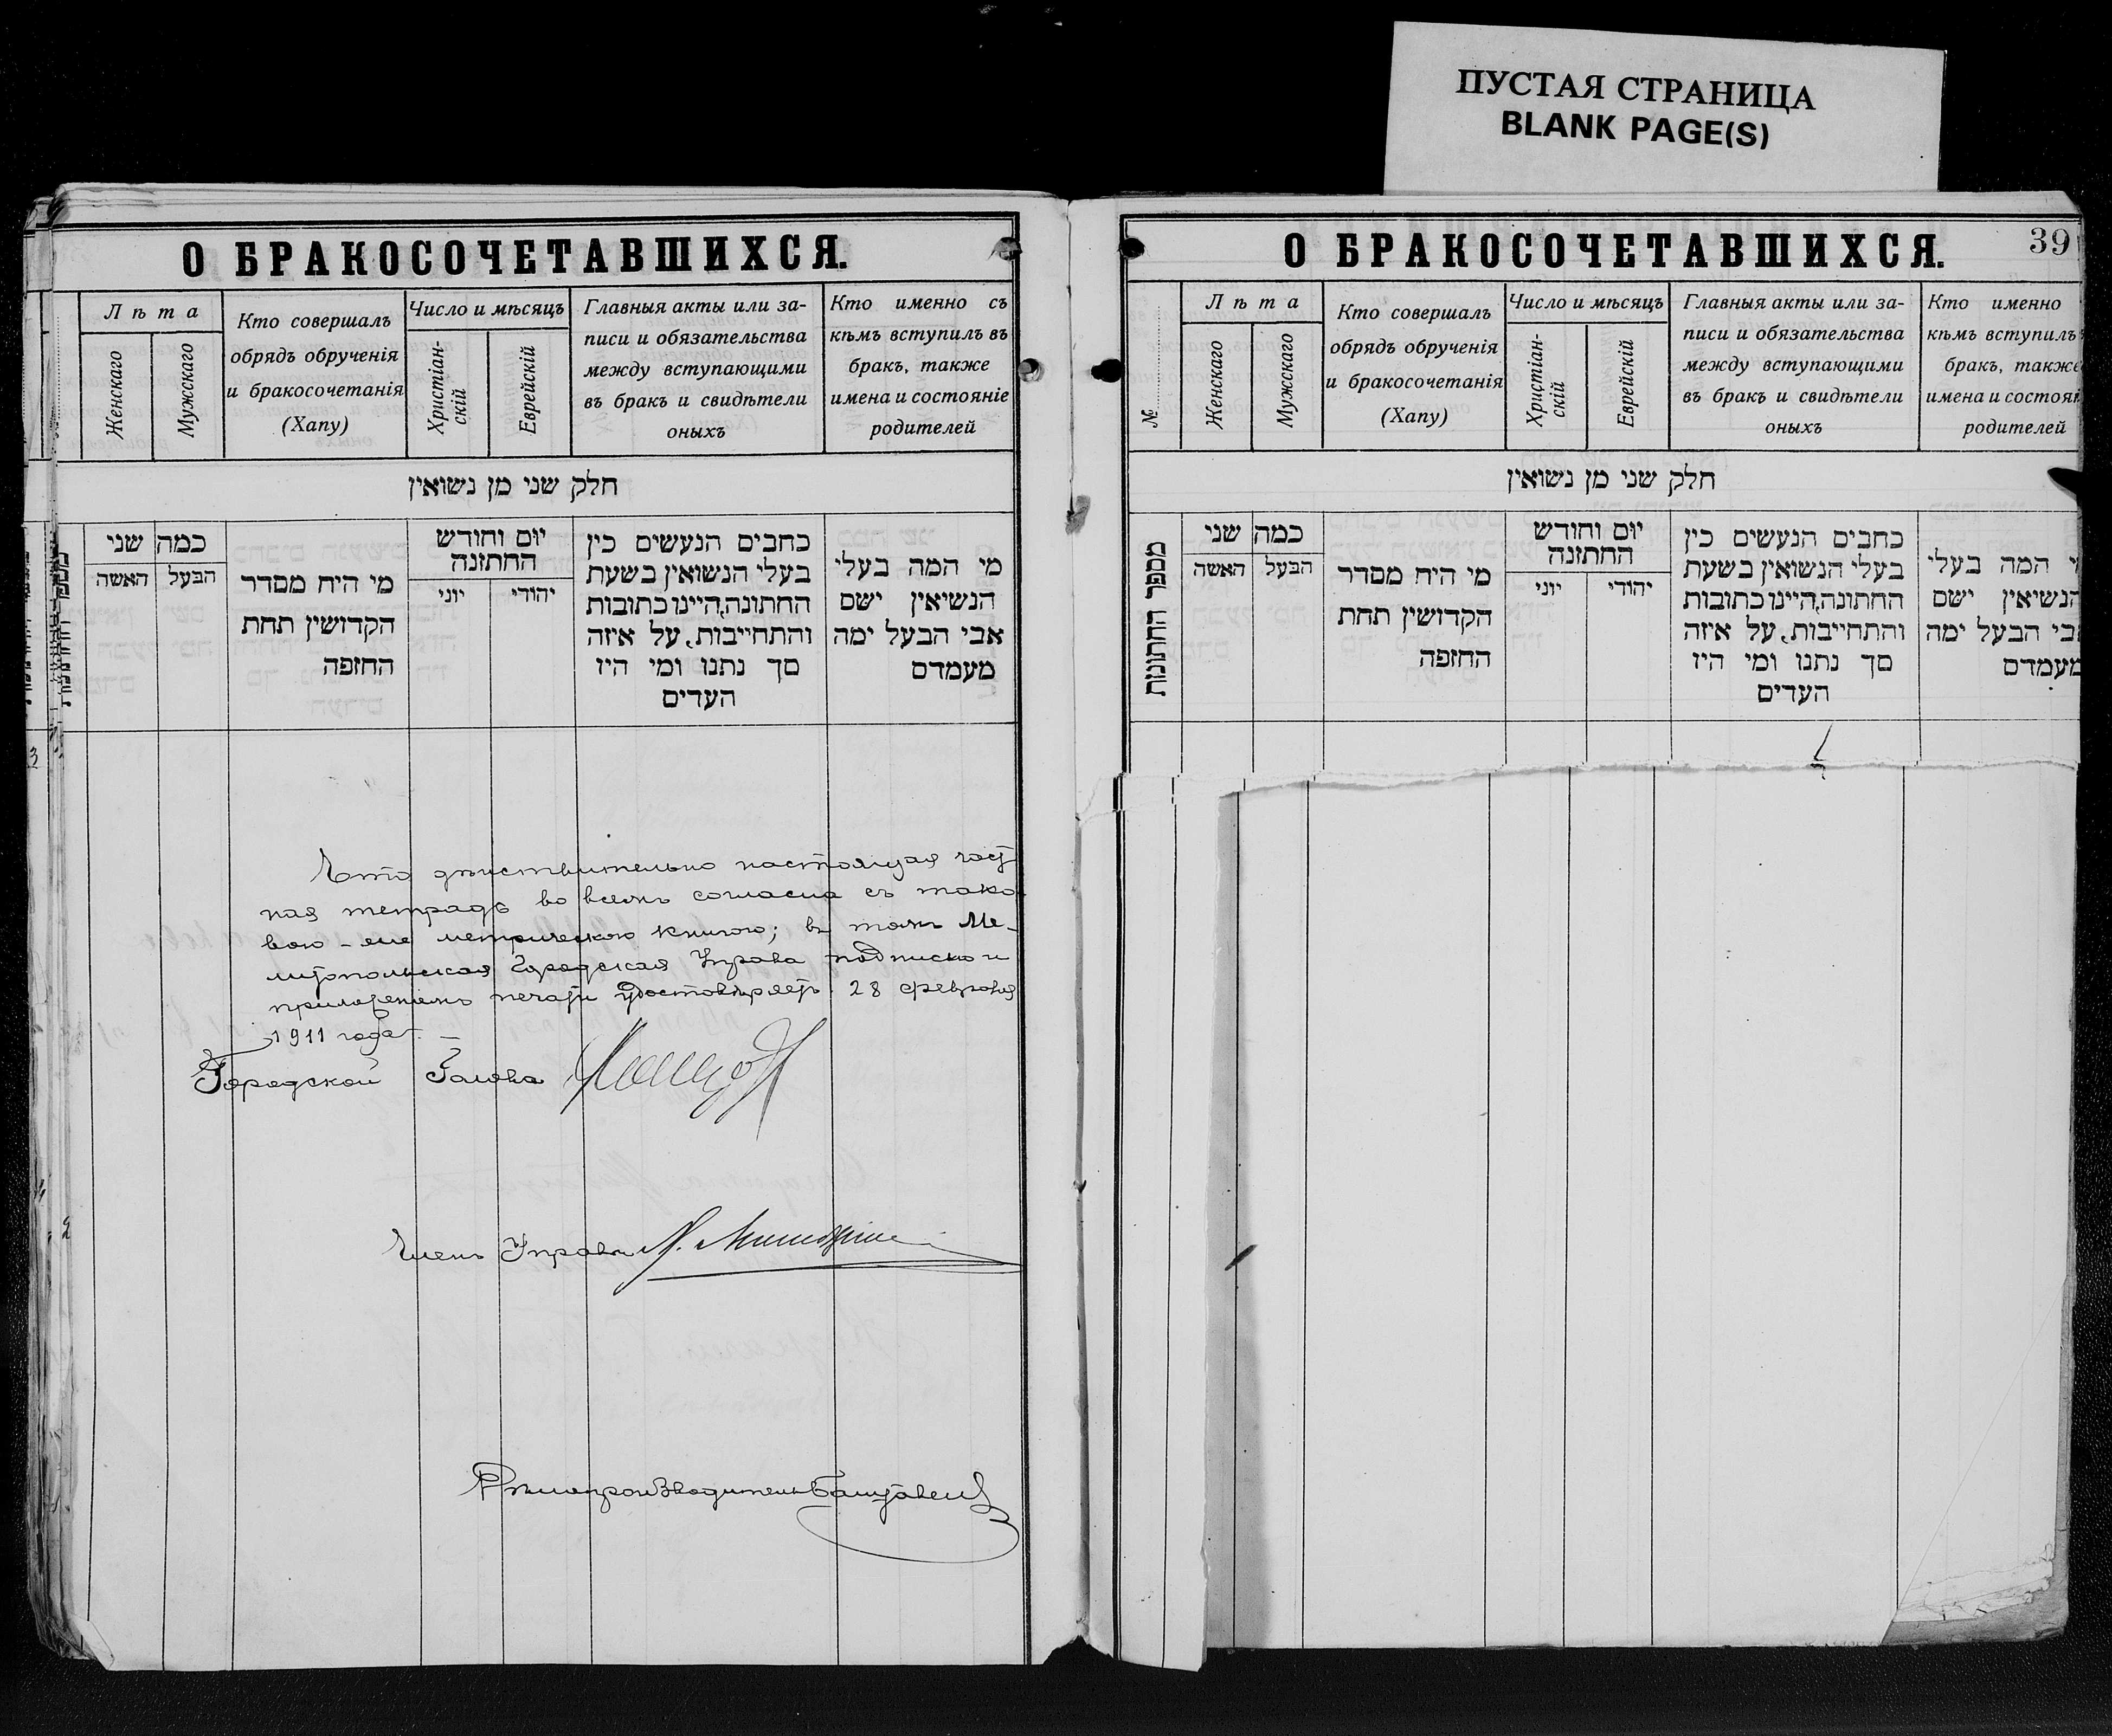 ПУСТАЯ СТРАНИЦА
BLANK PAGE(S)
О БРАКОСОЧЕТАВШИХСЯ.
Лѣта
Женскаго
Мужскаго
Кто совершалъ
обрядъ обрученія
и бракосочетанія
(Хапу)
Число и мѣсяцъ
Христіан-
скій
Еврейскій
Главныя акты или за-
писи и обязательства
между вступающими
въ бракъ и свидѣтели
оныхъ
Кто именно съ
кѣмъ вступилъ въ
бракъ, также
имена и состояніе
родителей
חלק שני מן נשואין
כמה שני
הבעל האשה
מי היח מסדר
הקדושין תחת
החזפה
יום וחודש
החתזנה
יהודי יוני
כחבים הנעשים כין
בעלי הנשואין בשעת
החתונה, היינו כתובות
והתחייבות, על איזה
סך נתנו ומי היז
העדים
מי המה בעלי
הנשיאין ישם
אבי הבעל ימה
מעמדם
3
Что дѣйствительно настоящая част
ная тетрадь во всемъ согласна съ тако
вою-же метрическою книгою; въ томъ Ме-
литопольская Городская Управа подписью и
приложеніемъ печати удостовѣряетъ 28 февраля
1911 года.
Городской Голова
Членъ Управы
Дѣлопроизводитель
О БРАКОСОЧЕТАВШИХСЯ.
39
№
Лѣта
Женскаго
Мужскаго
Кто совершалъ
обрядъ обрученія
и бракосочетанія
(Хапу)
Число и мѣсяцъ
Христіан-
скій
Еврейскій
Главныя акты или за-
писи и обязательства
между вступающими
въ бракъ и свидѣтели
оныхъ
Кто именно
кѣмъ вступилъ
бракъ, также
имена и состоян
родителей
חלק שני מן נשואין
מספר החתונות
כמה שני
הבעל האשה
מי היח מסדר
הקדושין תחת
החזפה
יום וחודש
החתזנה
יהודי יוני
כחבים הנעשים כין
בעלי הנשואין בשעת
החתונה, היינו כתובות
והתחייבות, על איזה
סך נתנו ומי היז
העדים
י המה בעלי
הנשיאין ישם
אבי הבעל ימה
מעמדם